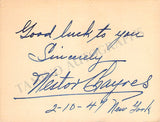 Good luck to you
Sincerely
Nestor Chayres
2-10-41 New York